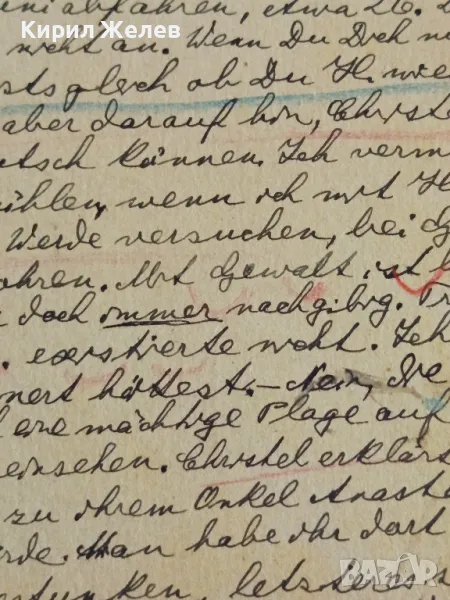 Кирил Желев
abfahren, etwa 26.
nicht an. Wenn Du Dich
gleich ob Du H. wie
aber darauf hin, Christe
utsch können. Ich verm
ühlen, wenn ich mit H
Werde versuchen, bei G
ahren. Mit Gewalt ist
doch immer nachgibig. Tr
. existierte nicht. Ich
nert hättest. – Nein, Die
eine mächtige Plage auf
einsehen. Christel erklärt
zu ihrem Onkel Anast
rde. Man habe ihr dort
letztens
BAZAR